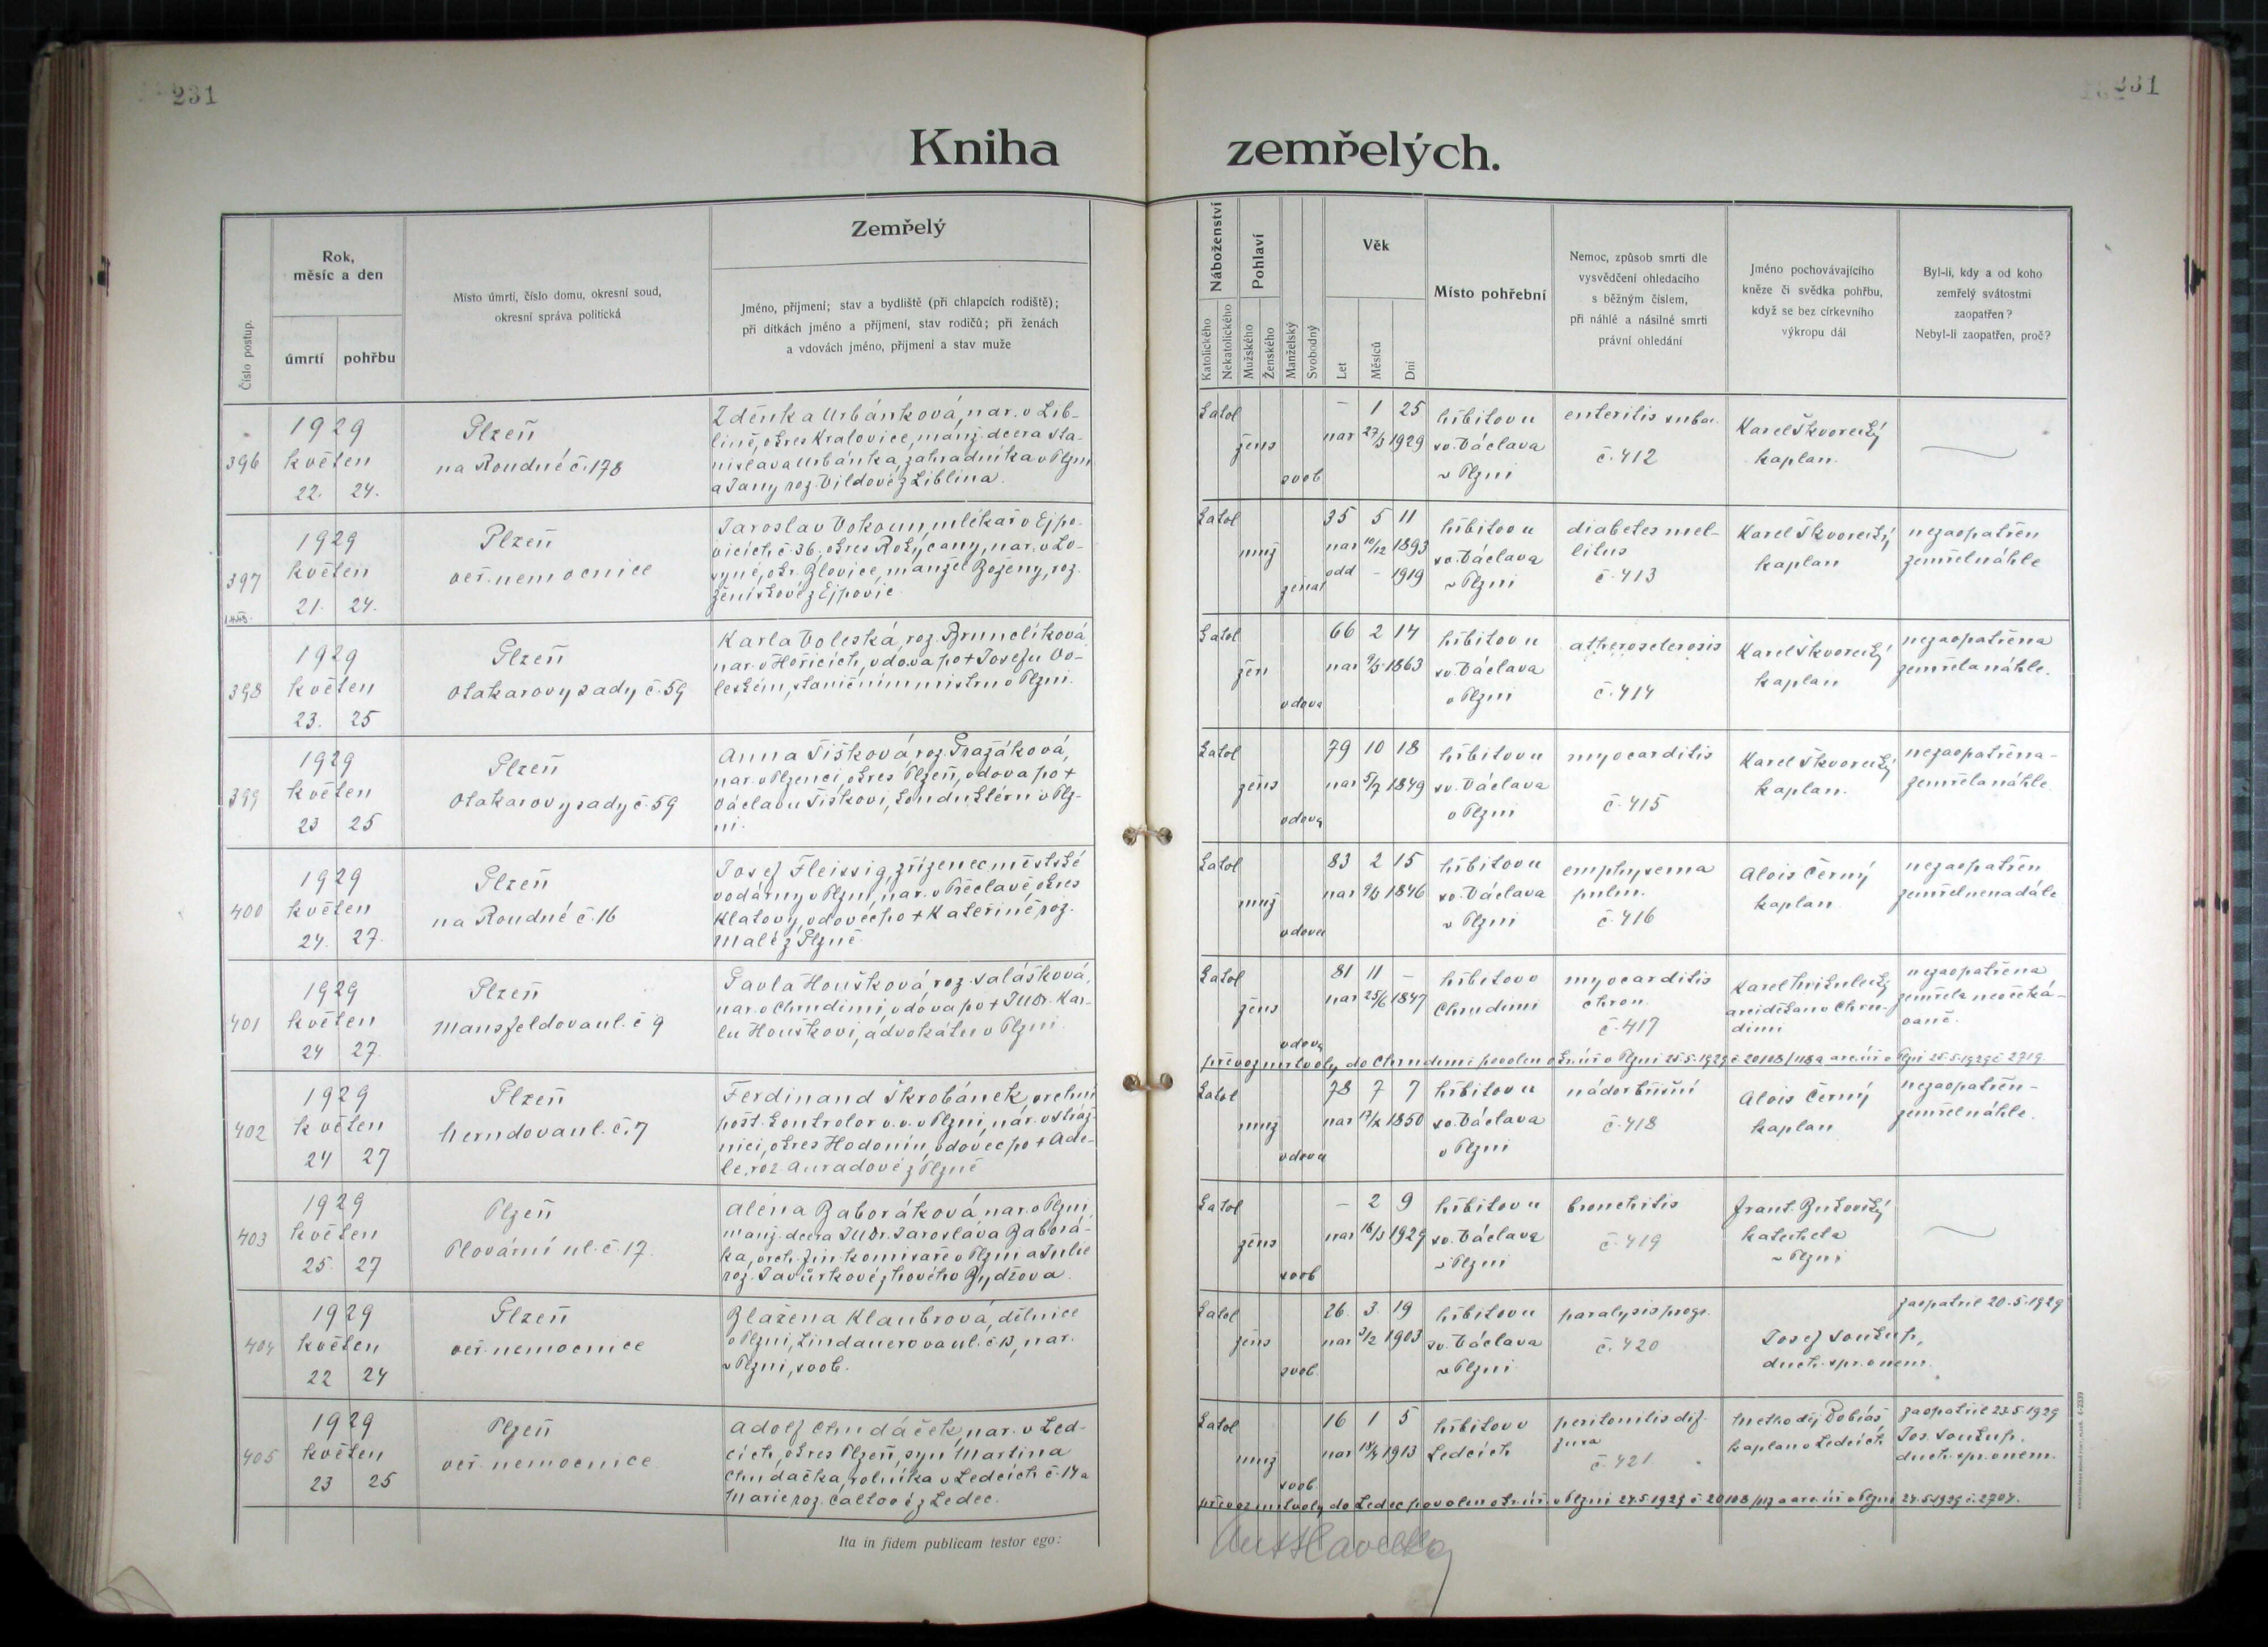 231
231
Kniha zemřelých.
Číslo postup.
Rok, měsíc a den
úmrtí
pohřbu
Místo úmrtí, číslo domu, okresní soud,
okresní správa politická
Zemřelý
Jméno, příjmení; stav a bydliště (při chlapcích rodiště);
při dítkách jméno a příjmení, stav rodičů; při ženách
a vdovách jméno, příjmení a stav muže
Náboženství
Katolického
Nekatolického
Pohlaví
Mužského
Ženského
Manželský
Svobodný
Věk
Let
Měsíců
Dní
Místo pohřební
Nemoc, způsob smrti dle
vysvědčení ohledacího
s běžným číslem,
při náhlé a násilné smrti
právní ohledání
Jméno pochovávajícího
kněze či svědka pohřbu,
když se bez církevního
výkropu dál
Byl-li, kdy a od koho
zemřelý svátostmi
zaopatřen?
Nebyl-li zaopatřen, proč?
396
1929
květen
22. 24.
Plzeň
na Roudné č. 178
Zděnka Urbánková, nar. v Lib-
líně, okres Kralovice, manž. dcera Sta-
nislava Urbánka, zahradníka v Plzni
a Jany roz. Vildové z Liblína.
katol
žens
svob
– 1 25
nar 27/3 1929
hřbitov u
sv. Václava
v Plzni
enteritis subac.
č. 412
Karel Škvorecký
kaplan.
397
1929
květen
21. 24.
Plzeň
veř. nemocnice
Jaroslav Vokoun, mlékař v Ejpo-
vicích č. 36, okres Rokycany, nar. v Lo-
vyně, okr. Blovice, manžel Boženy, roz.
Ženíškové z Ejpovic.
katol
muž
ženat
35 5 11
nar 10/12 1893
odd – 1919
hřbitov u
sv. Václava
v Plzni
diabetes mel-
litus
č. 413
Karel Škvorecký
kaplan
nezaopatřen
zemřel náhle
398
1929
květen
23. 25
Plzeň
Otakarovy sady č. 59
Karla Voleská, roz. Brunclíková
nar. v Hořicích, vdova po + Josefu Vo-
leském, staničním mistru v Plzni.
katol
žen
vdova
66 2 14
nar 9/3 1863
hřbitov u
sv. Václava
v Plzni
atherosclerosis
č. 414
Karel Škvorecký
kaplan
nezaopatřena
zemřela náhle.
399
1929
květen
23 25
Plzeň
Otakarovy sady č. 59
Anna Šišková, roz. Pražáková,
nar. v Plzenci, okres Plzeň, vdova po +
Václavu Šiškovi, konduktéru v Plz-
ni.
katol
žens
vdova
79 10 18
nar 5/7 1849
hřbitov u
sv. Václava
v Plzni
myocarditis
č. 415
Karel Škvorecký
kaplan.
nezaopatřena-
zemřela náhle.
400
1929
květen
24. 27.
Plzeň
na Roudné č. 16
Josef Fleissig, zřízenec městské
vodárny v Plzni, nar. v okres
Klatovy, vdovec po + Kateřině roz.
Malé z Plzně.
katol
muž
vdovec
83 2 15
nar 9/3 1846
hřbitov u
sv. Václava
v Plzni
emphysema
pulm.
č. 416
Alois Černý
kaplan.
nezaopatřen
zemřel nenadále
401
1929
květen
24 27.
Plzeň
Mansfeldova ul. č 9
Pavla Houšková roz. Salášková,
nar. v Chrudimi, vdova po + JUDr. Kar-
lu Houškovi, advokátu v Plzni.
katol
žens
vdova
81 11 –
nar 25/6 1847
hřbitov v
Chrudimi
myocarditis
chron.
č. 417
Karel
arciděkan v Chru-
dimi
nezaopatřena
zemřela neočeká-
vaně.
převoz mrtvoly do Chrudimi povolen okr. úř. v Plzni 25.5.1929 č. 20108/118 a arc. úř. v Plzni 25.5.1929 č. 2719
402
1929
květen
24 27
Plzeň
Nerudova ul. č. 7
Ferdinand Škrobánek, vrchní
pošt. kontrolor v. v. v Plzni, nar. v Stráž-
nici, okres Hodonín, vdovec po + Ade-
le, roz Auradové z Plzně
katol
muž
vdovec
78 7 7
nar 17/X 1850
hřbitov u
sv. Václava
v Plzni
nádor břišní
č. 418
Alois Černý
kaplan
nezaopatřen-
zemřel náhle.
403
1929
květen
25. 27
Plzeň
Plovární ul. č. 17.
Aléna Baboráková nar. v Plzni,
manž. dcera JUDr. Jaroslava Baborá-
ka, vrch. fin. komisaře v Plzni a Julie
roz. Javůrkové z Nového Bydžova.
katol
žens
svob
– 2 9
nar 16/3 1929
hřbitov u
sv. Václava
v Plzni
bronchitis
č. 419
Frant.
katecheta
v Plzni
404
1929
květen
22 24
Plzeň
veř. nemocnice
Blažena Klaubrová, dělnice
v Plzni, Lindauerova ul. č. 13, nar.
v Plzni, svob.
katol
žens
svob.
26 3 19
nar 3/2 1903
hřbitov u
sv. Václava
v Plzni
paralysis progr.
č. 420
Josef Soukup,
duch. spr. v nem.
zaopatřil 20.5.1929
405
1929
květen
23 25
Plzeň
veř. nemocnice.
Adolf Chudáček, nar. v Led-
cích, okres Plzeň, syn Martina
Chudáčka, rolníka v Ledcích č. 14 a
Marie roz. Caltové z Ledec.
katol
muž
svob.
16 1 5
nar 18/4 1913
hřbitov v
Ledcích
peritonitis dif-
fusa
č. 421.
Methoděj Tobiáš,
kaplan v Ledcích
zaopatřil 23.5.1929
Jos. Soukup,
duch. spr. v nem.
převoz mrtvoly do Ledec povolen okr. úř. v Plzni 24.5.1929 č 20108/117 a arc. úř. v Plzni 24.5.1929 č. 2704.
Ita in fidem publicam testor ego: